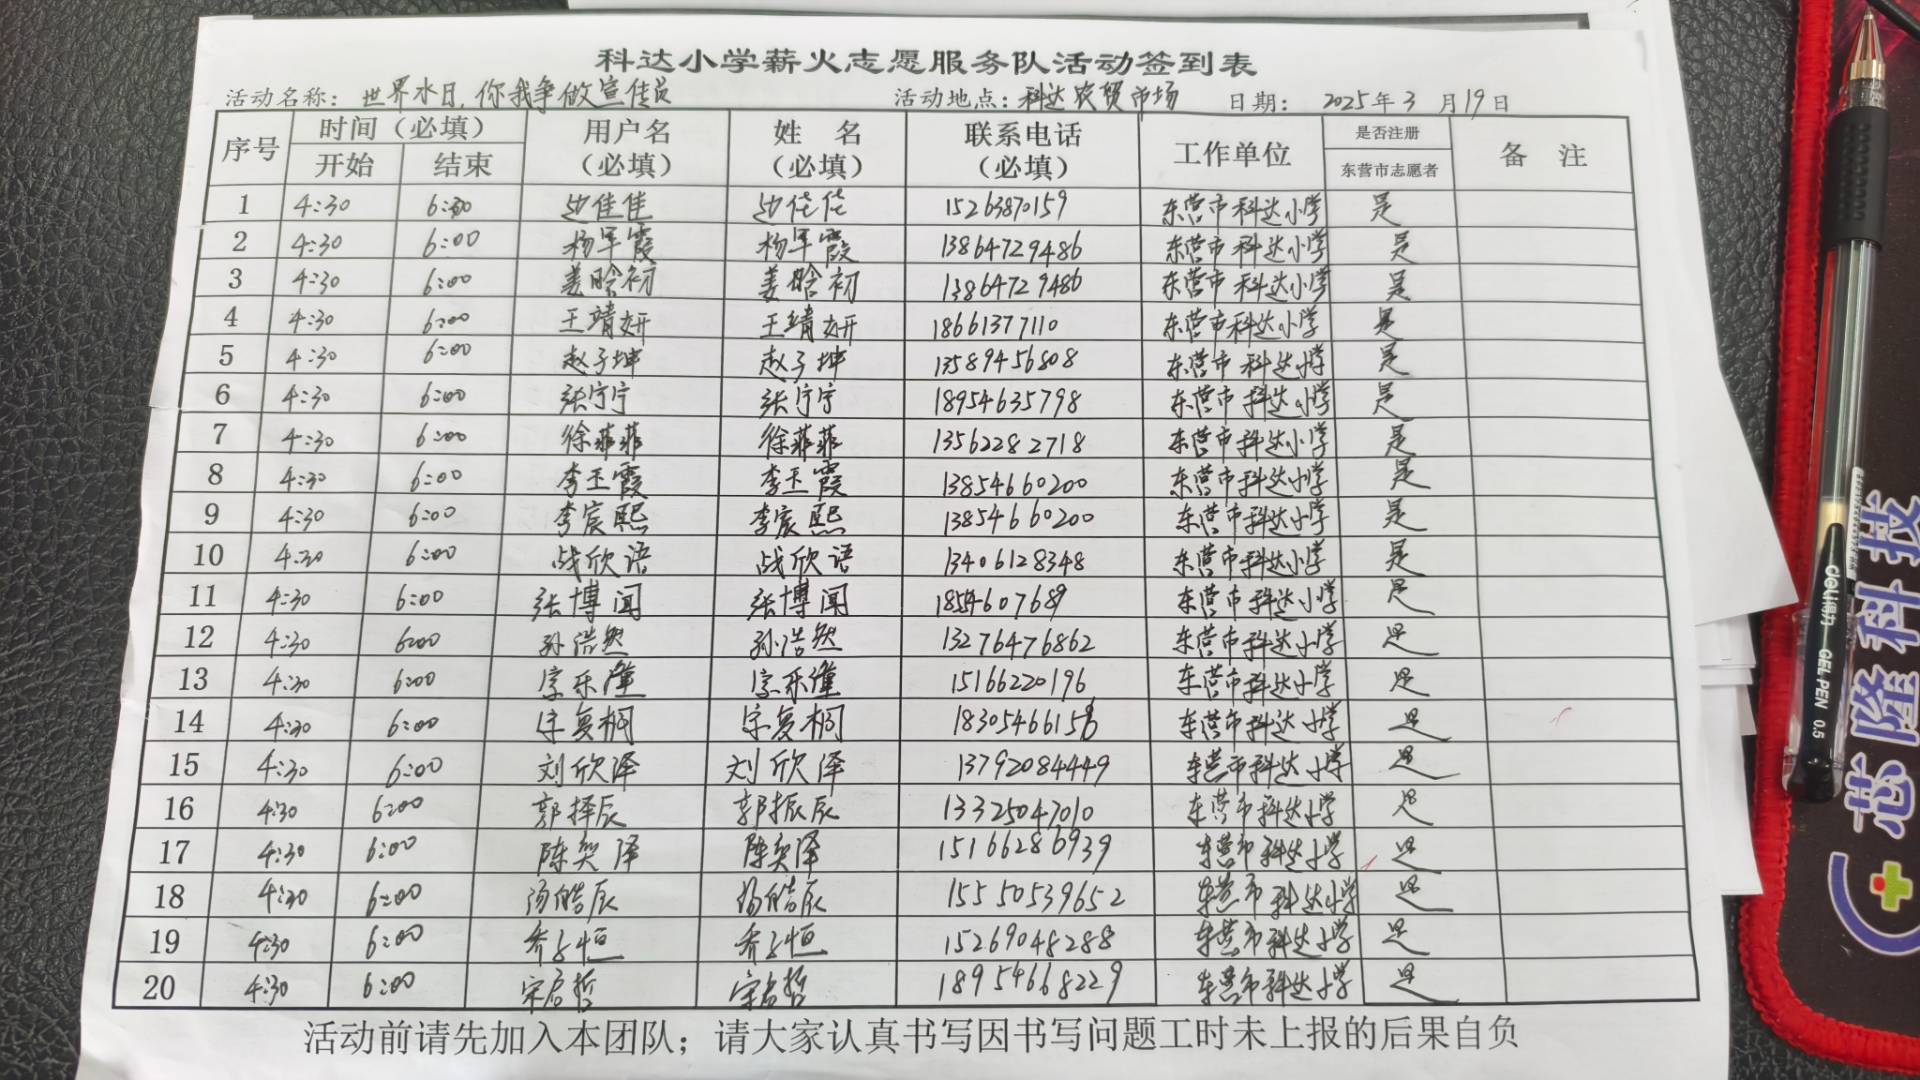 科达小学薪火志愿服务队活动签到表
活动名称：世界水日,你我争做宣传员 活动地点：科达农贸市场 日期：2025年3月19日
序号 时间（必填） 用户名（必填） 姓名（必填） 联系电话（必填） 工作单位 是否注册 备注
开始 结束 东营市志愿者
1 4:30 6:30 边佳佳 边佳佳 15263870159 东营市科达小学 是
2 4:30 6:00 杨军霞 杨军霞 13864729486 东营市科达小学 是
3 4:30 6:00 姜晗初 姜晗初 13864729486 东营市科达小学 是
4 4:30 6:00 王靖妍 王靖妍 18661377110 东营市科达小学 是
5 4:30 6:00 赵子坤 赵子坤 13589456808 东营市科达小学 是
6 4:30 6:00 张宁宁 张宁宁 18954635798 东营市科达小学 是
7 4:30 6:00 徐菲菲 徐菲菲 13562282718 东营市科达小学 是
8 4:30 6:00 李玉霞 李玉霞 13854660200 东营市科达小学 是
9 4:30 6:00 李宸熙 李宸熙 13854660200 东营市科达小学 是
10 4:30 6:00 战欣语 战欣语 13406128348 东营市科达小学 是
11 4:30 6:00 张博闻 张博闻 1854607689 东营市科达小学 是
12 4:30 6:00 孙浩然 孙浩然 13276476862 东营市科达小学 是
13 4:30 6:00 15166220196 东营市科达小学 是
14 4:30 6:00 宋复桐 宋复桐 东营市科达小学 是
15 4:30 6:00 刘欣泽 刘欣泽 13792084449 东营市科达小学 是
16 4:30 6:00 郭择辰 郭振辰 13325047010 东营市科达小学 是
17 4:30 6:00 陈奕泽 陈奕泽 15166286939 东营市科达小学 是
18 4:30 6:00 汤皓辰 杨皓辰 15550539652 东营市科达小学 是
19 4:30 6:00 乔子恒 乔子恒 15269048288 东营市科达小学 是
20 4:30 6:00 宋启哲 宋启哲 18954668229 东营市科达小学 是
活动前请先加入本团队；请大家认真书写因书写问题工时未上报的后果自负
deli得力 GEL PEN 0.5
芯隆科技